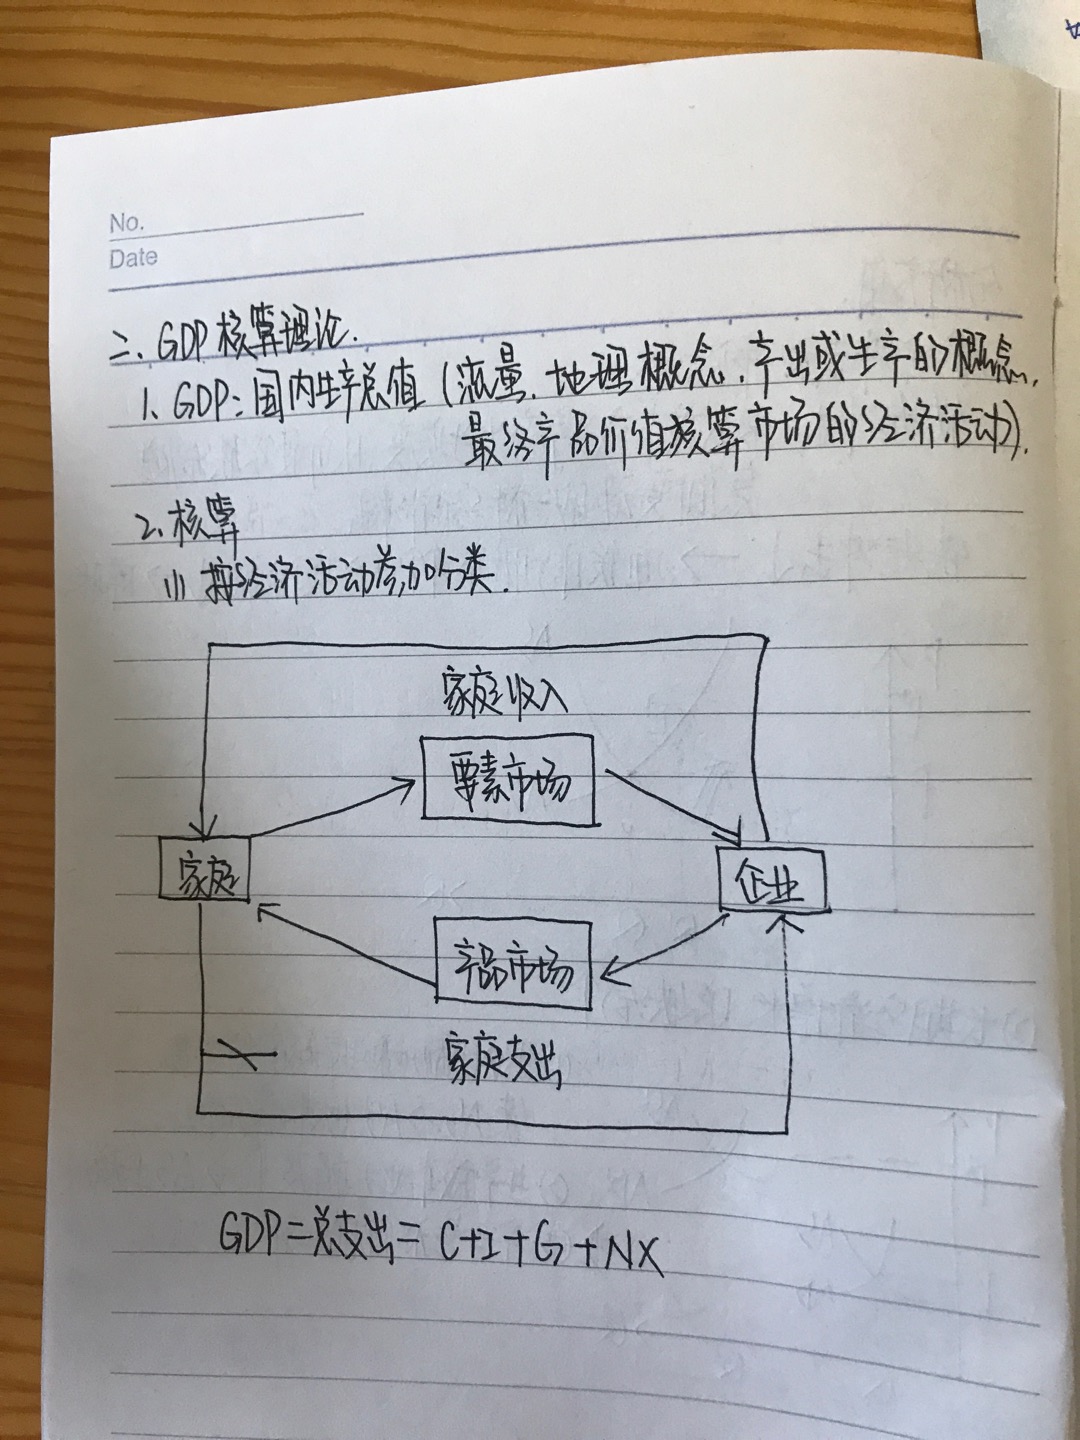 No.
Date
二、GDP核算理论.
1、GDP：国内生产总值（流量、地理概念、产出或生产的概念、
最终产品价值核算市场的经济活动）.
2、核算
(1) 按经济活动参加分类.
家庭收入
要素市场
家庭
企业
产品市场
家庭支出
GDP=总支出= C+I+G+NX